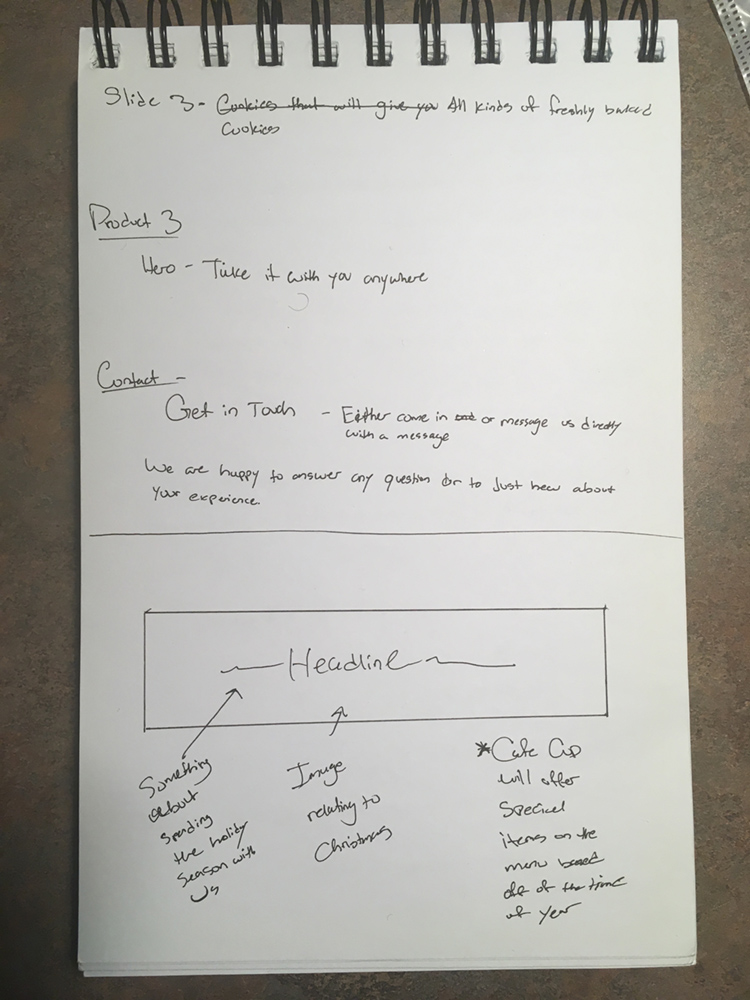 Slide 3 - Cookies that will give you All kinds of freshly baked
cookies
Product 3
Hero - Take it with you anywhere
Contact -
Get in Touch - Either come in or message us directly
with a message
We are happy to answer any question or to Just hear about
your experience.
Headline
Something
about
spending
the holidy
season with
Us
Image
relating to
Christmas
*Cafe Cup
will offer
special
items on the
menu based
off of the time
of year